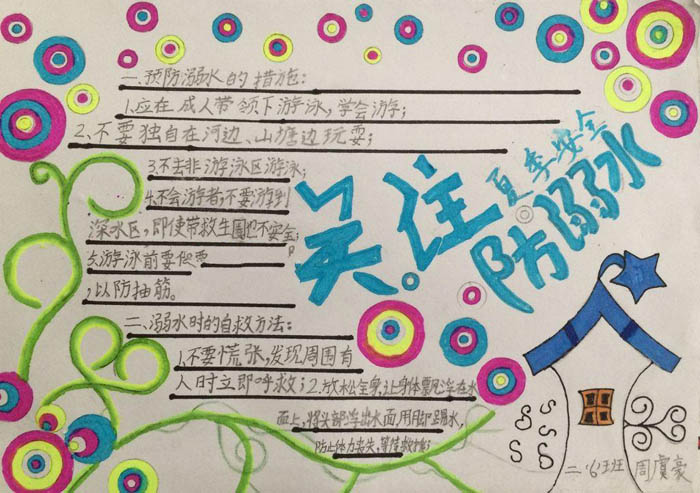 一、预防溺水的措施:
1.应在成人带领下游泳,学会游;
2、不要独自在河边、山塘边玩耍;
3.不去非游泳区游泳;
4.不会游者,不要游到
深水区,即使带救生圈也不安全;
5.游泳前要做
;以防抽筋。
二、溺水时的自救方法:
1.不要慌张,发现周围有
人时立即呼救;2.放松全身,让身体飘浮在水
面上,将头部浮出水面,用脚踢水,
防止体力丧失,等待救援;
关注
夏季安全
防溺水
二.6班 周虞豪